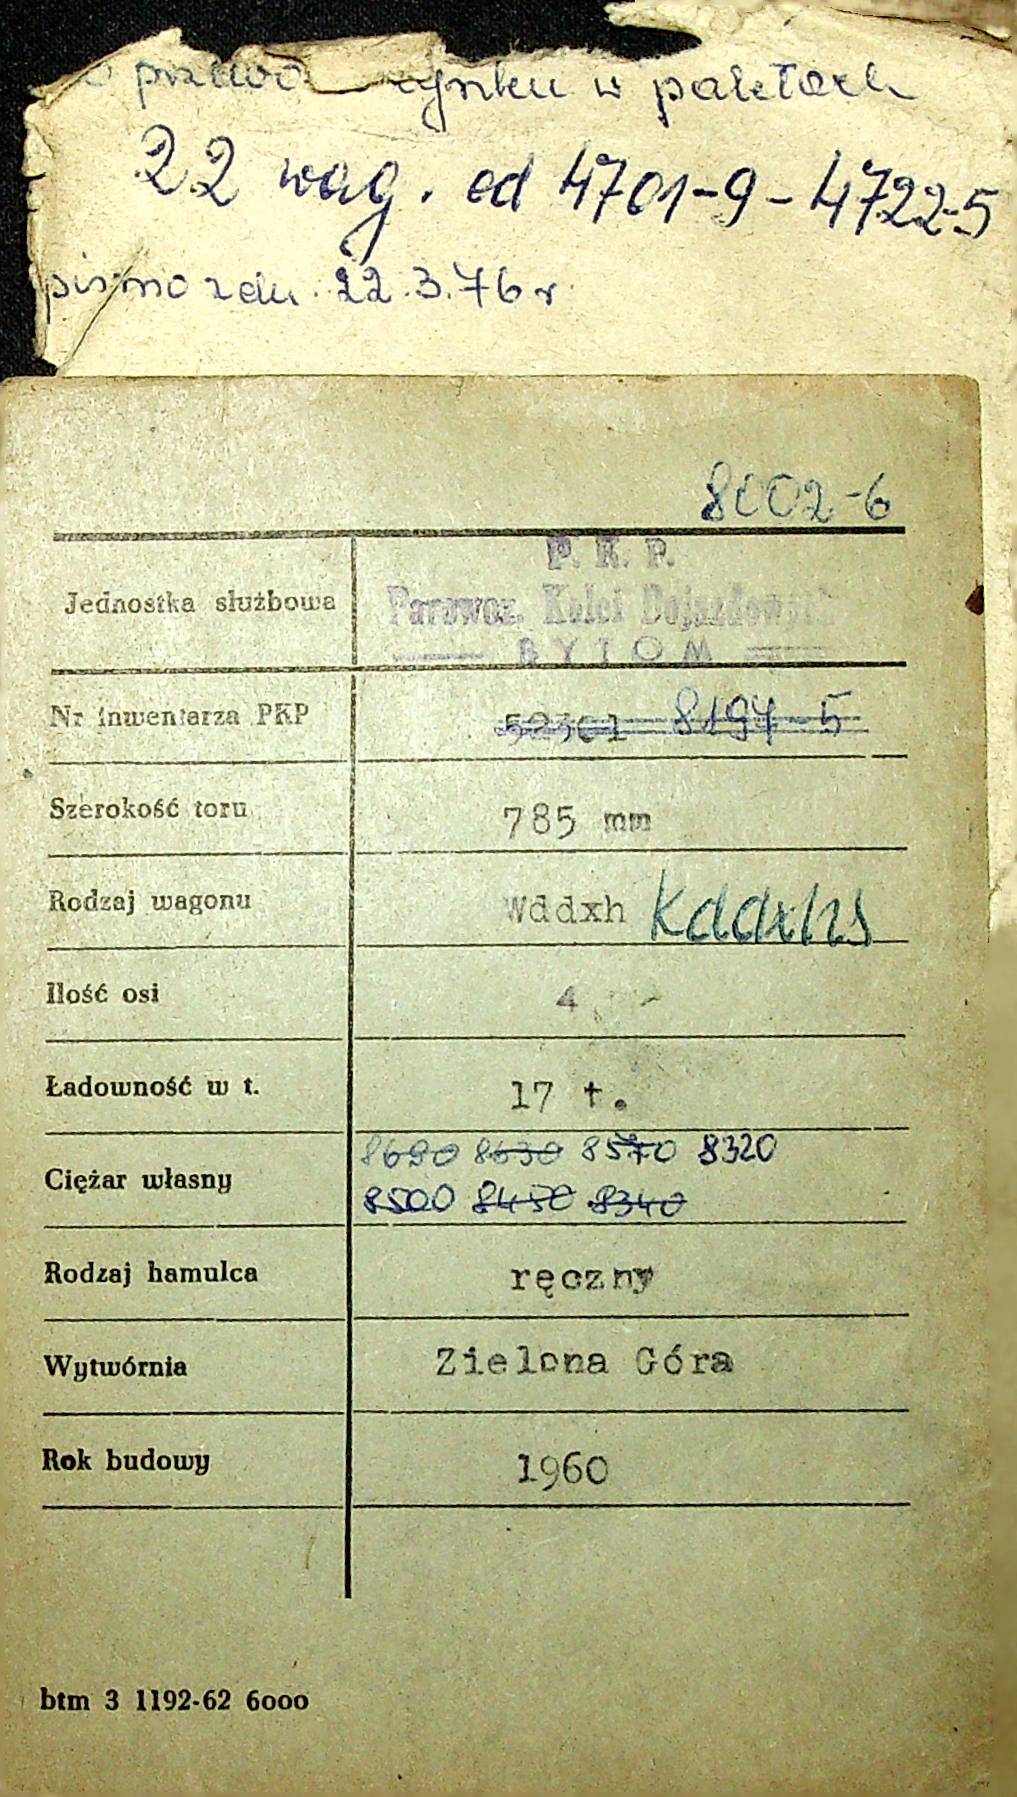 w paletach
22 wag. od 4701-9-4722-5
pismo z dn. 22.3.76 r
8002-6
Jednostka służbowa
P. K. P.
Parowoz. Kolei Dojazdowych
BYTOM
Nr inwentarza PKP 52301 8194-5
Szerokość toru 785 mm
Rodzaj wagonu Wddxh Kddxhs
Ilość osi 4
Ładowność w t. 17 t.
Ciężar własny
8690 8630 8570 8320
8500 8450 8340
Rodzaj hamulca ręczny
Wytwórnia Zielona Góra
Rok budowy 1960
btm 3 1192-62 6000